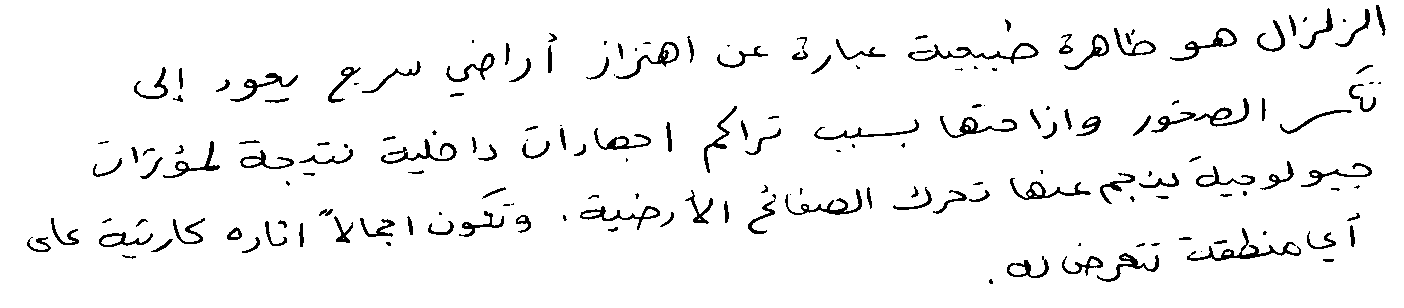 الزلزال هو ظاهرة طبيعية عبارة عن اهتزاز أراضي سريع يعود إلى
تكسر الصخور وازاحتها بسبب تراكم اجهادات داخلية نتيجة لمؤثرات
جيولوجية ينجم عنها تحرك الصفائح الأرضية. وتكون اجمالاً اثاره كارثية على
أي منطقة تتعرض له.